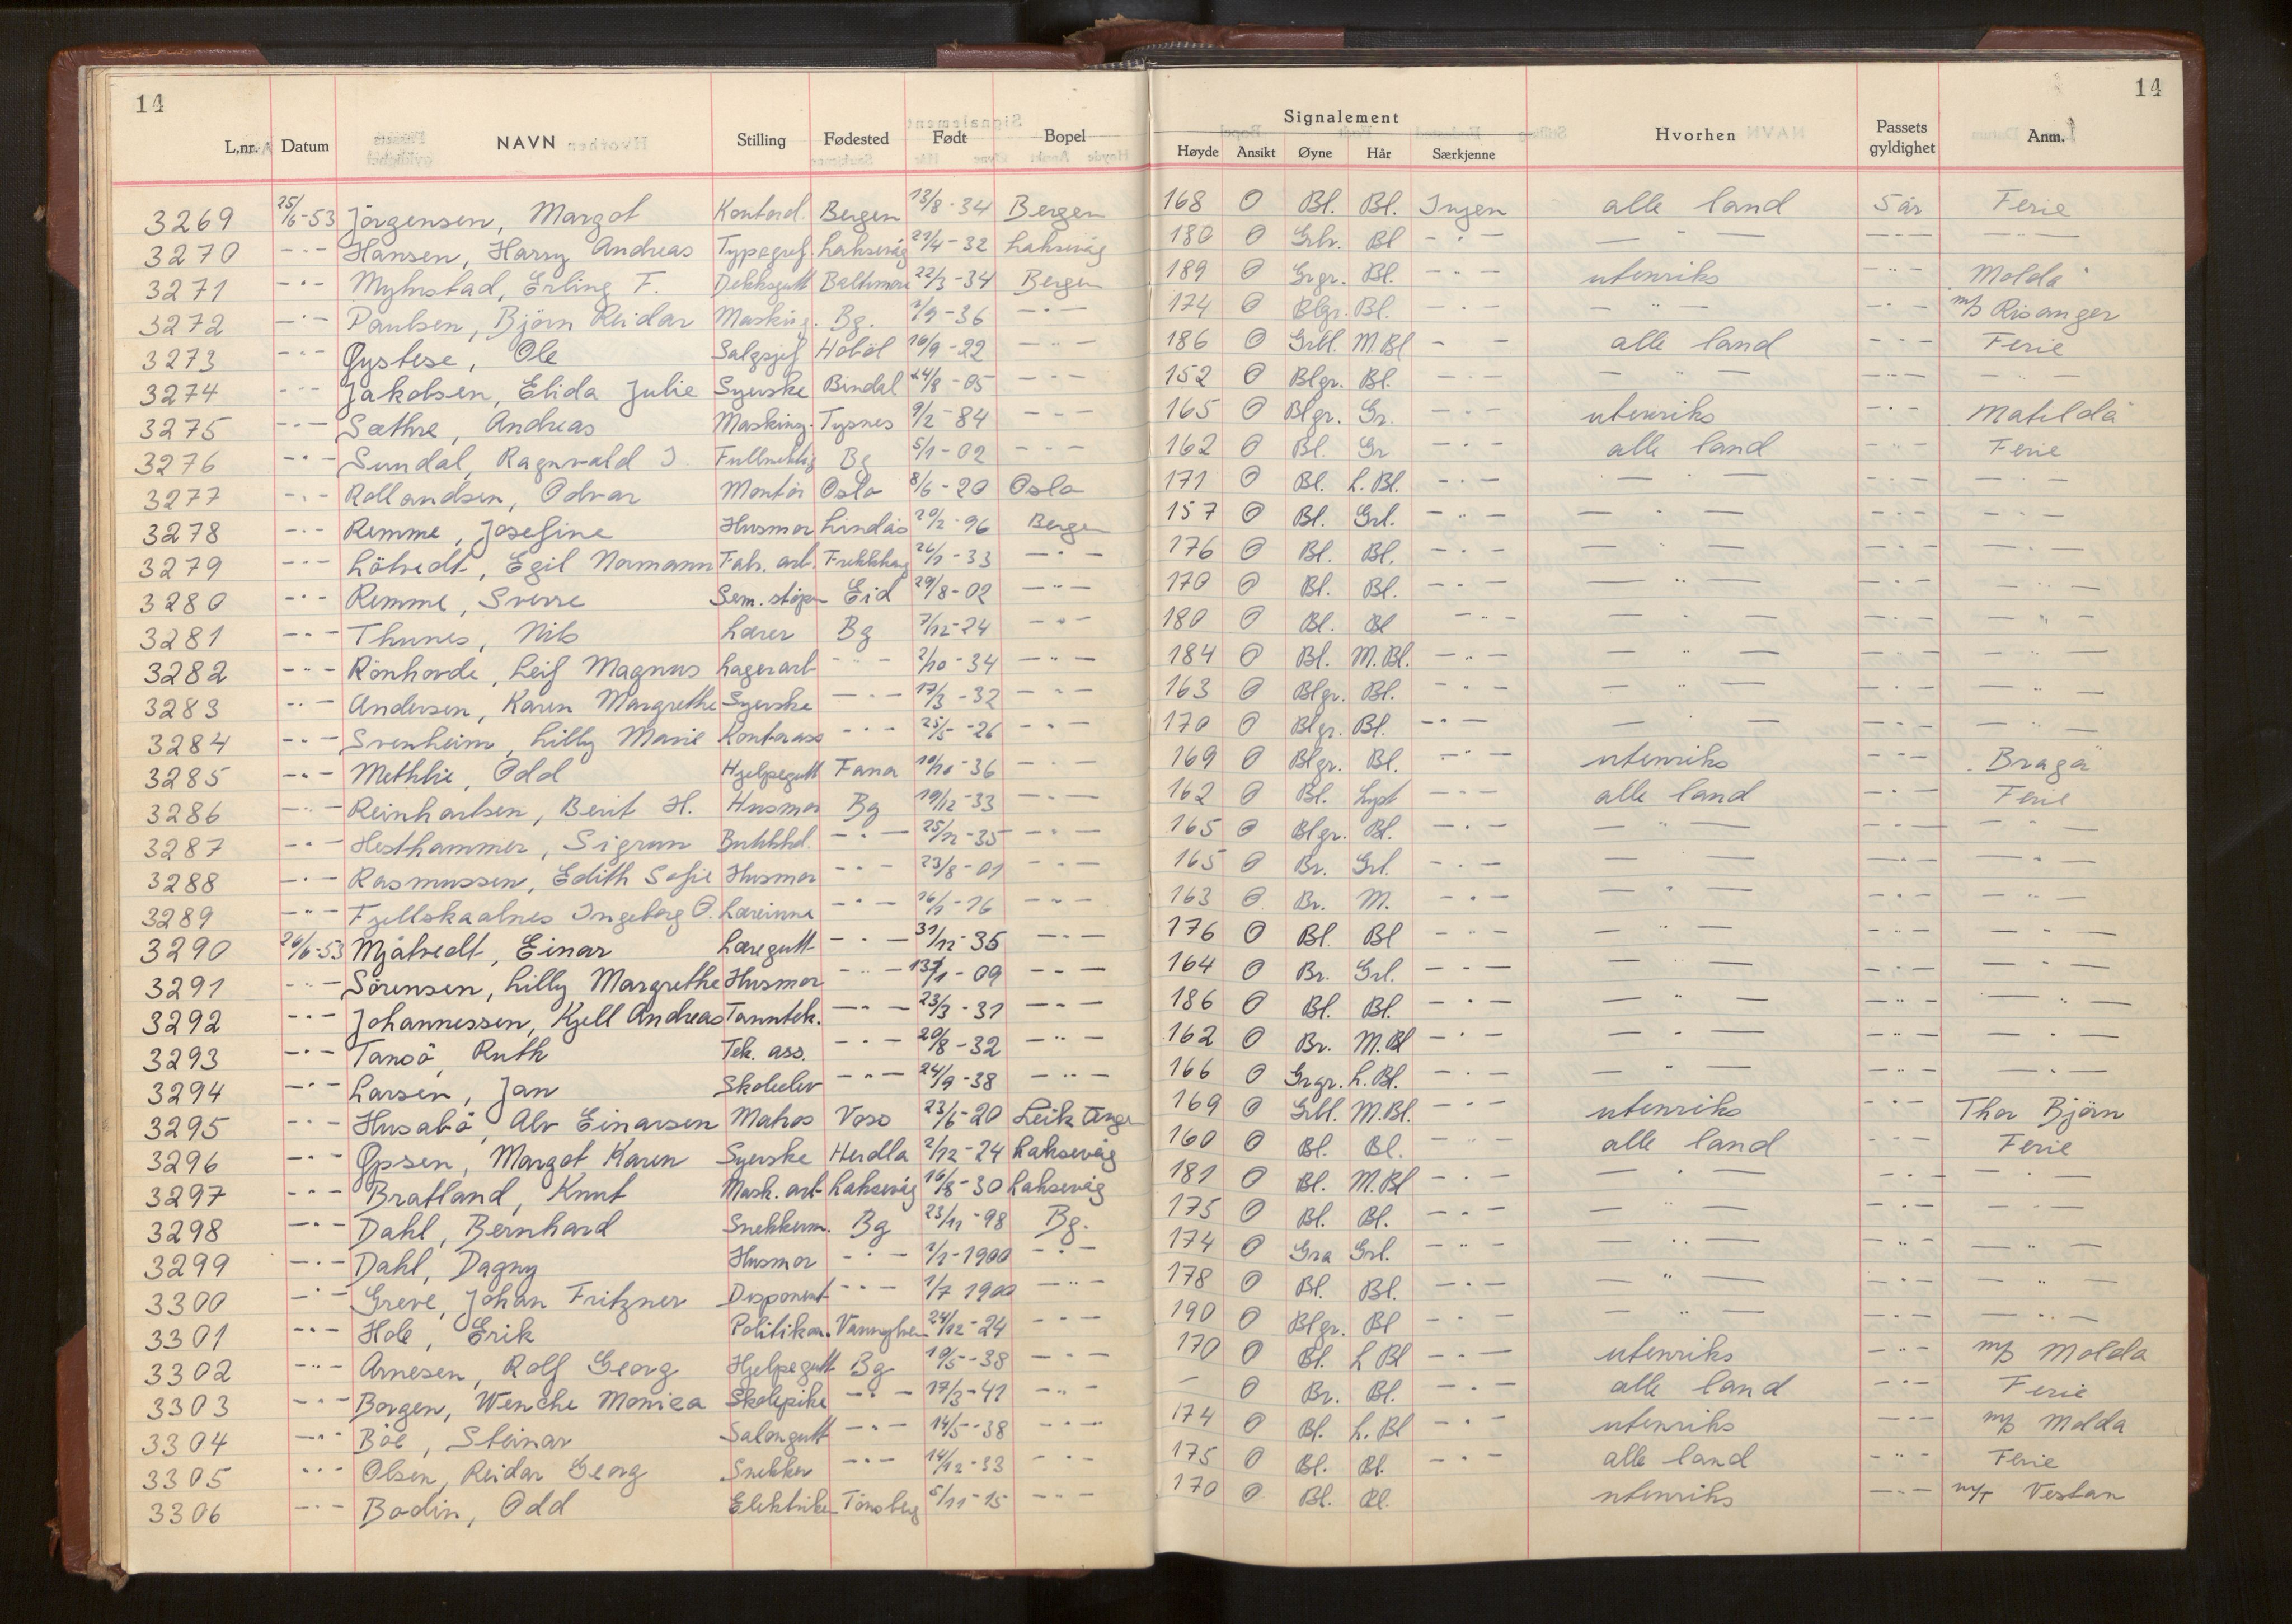 14 14
Signalement
L.nr. Datum NAVN Stilling Fødested Født Bopel Høyde Ansikt Øyne Hår Særkjenne Hvorhen Passets gyldighet Anm.
3269 25/6-53 Jörgensen, Margot Kontord. Bergen 13/8-34 Bergen 168 O Bl. Bl. Ingen alle land 5 år Ferie
3270 -"- Hansen, Harry Andreas Typogref. Laksevåg 29/4-32 Laksevåg 180 O Grbr. Bl -"- -"- -"- -"-
3271 -"- Myhrstad, Erling F. Dekksgutt Baltimore 22/3-34 Bergen 189 O Grgr. Bl. -"- utenriks -"- "Molda"
3272 -"- Paulsen, Björn Reidar Masking. Bg. 2/9-36 -"- 174 O Blgr. Bl. -"- -"- -"- m/s Risanger
3273 -"- Øystese, Ole Salgsjef Hobøl 16/9-22 -"- 186 O Grbl. M.Bl - - alle land -"- Ferie
3274 -"- Jakobsen, Elida Julie Syerske Bindal 24/8-05 -"- 152 O Blgr. Bl. -"- -"- -"- -"-
3275 -"- Sæthre, Andreas Masking. Tysnes 9/2-84 -"- 165 O Blgr. Gr. -"- utenriks -"- "Matilda"
3276 -"- Sundal, Ragnvald I. Fullmektig Bg 5/1-02 -"- 162 O Bl. Gr -"- alle land -"- Ferie
3277 -"- Rollandsen, Odvar Montör Oslo 8/6-20 Oslo 171 O Bl. L.Bl. -"- -"- -"- -"-
3278 -"- Remme, Josefine Husmor Lindås 20/2-96 Bergen 157 O Bl. Grl. -"- -"- -"- -"-
3279 -"- Lötvedt, Egil Normann Fabr. arb. Frekkhaug 26/1-33 -"- 176 O Bl. Bl. -"- -"- -"- -"-
3280 -"- Remme, Sverre Sem. støper Eid 29/8-02 -"- 170 O Bl. Bl. -"- -"- -"- -"-
3281 -"- Thunes, Nils Lærer Bg 7/12-24 -"- 180 O Bl. Bl -"- -"- -"- -"-
3282 -"- Rönhovde, Leif Magnus Lagerarb -"- 2/10-34 -"- 184 O Bl. M.Bl. -"- -"- -"- -"-
3283 -"- Andersen, Karen Margrethe Syerske -"- 17/3-32 -"- 163 O Blgr. Bl. -"- -"- -"- -"-
3284 -"- Svenheim, Lilly Marie Kontorass -"- 25/5-26 -"- 170 O Blgr. Bl. -"- -"- -"- -"-
3285 -"- Methlie, Odd Hjelpegutt Fana 10/10-36 -"- 169 O Blgr. Bl. -"- utenriks -"- "Braga"
3286 -"- Reinhartsen, Berit H. Husmor Bg 19/12-33 -"- 162 O Bl. Lyst -"- alle land -"- Ferie
3287 -"- Hesthammer, Sigrun Butikkd. -"- 25/12-35 -"- 165 O Blgr. Bl. -"- -"- -"- -"-
3288 -"- Rasmussen, Edith Sofie Husmor -"- 23/8-01 -"- 165 O Br. Grl. -"- -"- -"- -"-
3289 -"- Fjellskaalnes Ingeborg O. Lærerinne -"- 16/1-16 -"- 163 O Br. M. -"- -"- -"- -"-
3290 26/6-53 Mjåtvedt, Einar Læregutt -"- 31/12-36 -"- 176 O Bl. Bl -"- -"- -"- -"-
3291 -"- Sörensen, Lilly Margrethe Husmor -"- 13/1-09 -"- 164 O Br. Grl. -"- -"- -"- -"-
3292 -"- Johannessen, Kjell Andreas Tanntek. -"- 23/3-31 -"- 186 O Bl. Bl. -"- -"- -"- -"-
3293 -"- Tansö, Ruth Tek. ass. -"- 20/8-32 -"- 162 O Br. M.Bl -"- -"- -"- -"-
3294 -"- Larsen, Jan Skoleelev -"- 24/9-38 -"- 166 O Grgr. L.Bl. -"- -"- -"- -"-
3295 -"- Husabö, Alv Einarsen Matros Voss 23/6-20 Leikanger 169 O Grbl. M.Bl. -"- utenriks -"- Thor Björn
3296 -"- Opsen, Margot Karen Syerske Herdla 2/12-24 Laksevåg 160 O Bl. Bl. -"- alle land -"- Ferie
3297 -"- Bratland, Knut Mask. arb Laksevåg 16/8-30 Laksevåg 181 O Bl. M.Bl -"- -"- -"- -"-
3298 -"- Dahl, Bernhard Snekkerm. Bg 23/11-98 Bg. 175 O Bl. Bl. -"- -"- -"- -"-
3299 -"- Dahl, Dagny Husmor -"- 1/1-1900 -"- 174 O Gra Grl. -"- -"- -"- -"-
3300 -"- Greve, Johan Fritzner Disponent -"- 1/7 1900 -"- 178 O Bl. Bl. -"- -"- -"- -"-
3301 -"- Hole, Erik Politikon. 24/12-24 -"- 190 O Blgr. Bl -"- -"- -"- -"-
3302 -"- Arnesen, Rolf Georg Hjelpegutt Bg 19/5-38 -"- 170 O Bl. L Bl -"- utenriks -"- m/s Molda
3303 -"- Borgen, Wenche Monica Skolepike -"- 17/3-41 -"- - O Br. Bl. -"- alle land -"- Ferie
3304 -"- Böe, Steinar Salongutt -"- 14/5-38 -"- 174 O Bl. L.Bl -"- utenriks -"- m/s Molda
3305 -"- Olsen, Reidar Georg Snekker -"- 14/12-33 -"- 175 O Bl. Bl. -"- alle land -"- Ferie
3306 -"- Bodin, Odd Elektriker Tönsberg 5/11-15 -"- 170 O Bl. Bl. utenriks -"- m/T Vestan